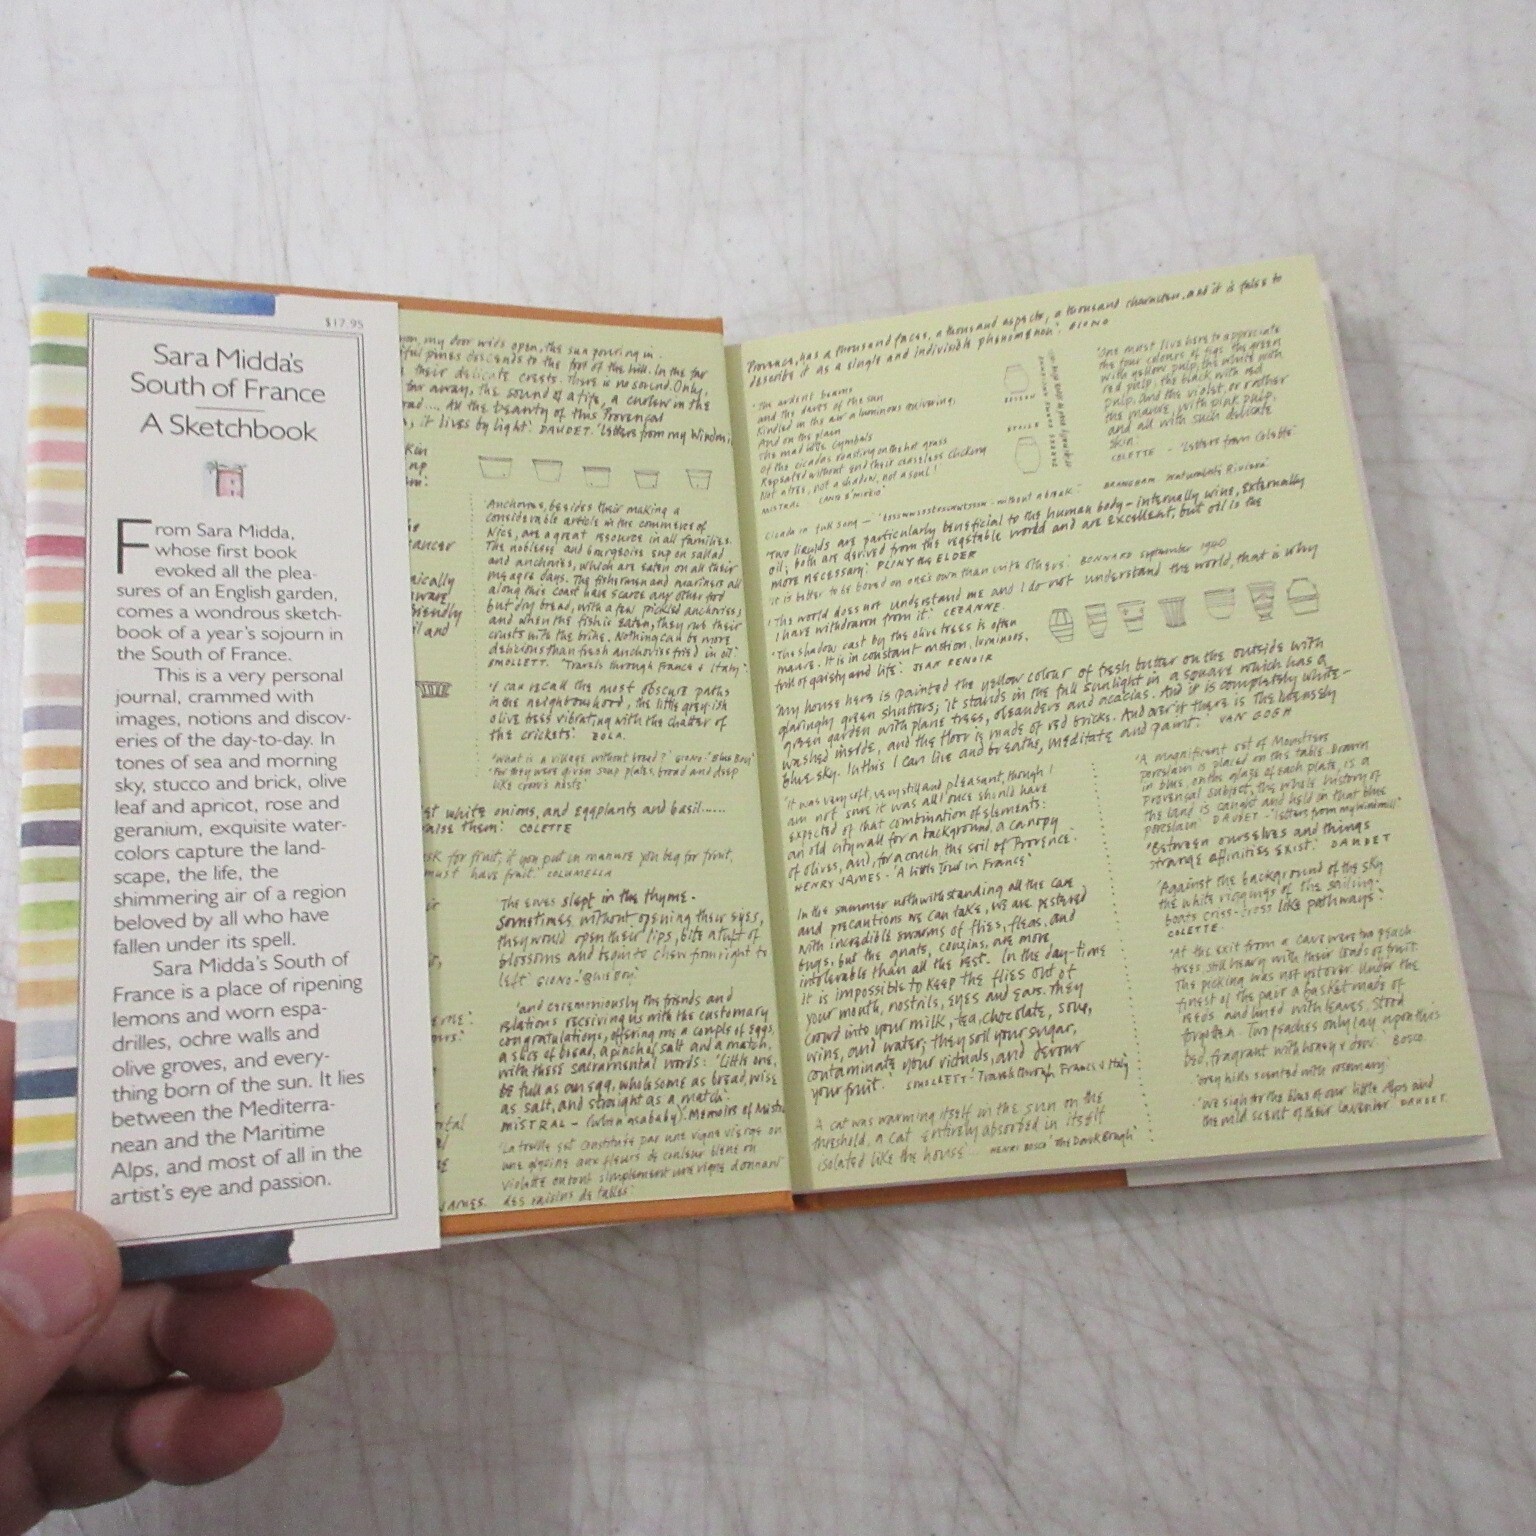 $17.95
Sara Midda's
South of France
A Sketchbook
From Sara Midda,
whose first book
evoked all the plea-
sures of an English garden,
comes a wondrous sketch-
book of a year's sojourn in
the South of France.
This is a very personal
journal, crammed with
images, notions and discov-
eries of the day-to-day. In
tones of sea and morning
sky, stucco and brick, olive
leaf and apricot, rose and
geranium, exquisite water-
colors capture the land-
scape, the life, the
shimmering air of a region
beloved by all who have
fallen under its spell.
Sara Midda's South of
France is a place of ripening
lemons and worn espa-
drilles, ochre walls and
olive groves, and every-
thing born of the sun. It lies
between the Mediterra-
nean and the Maritime
Alps, and most of all in the
artist's eye and passion.
my door wide open, the sun pouring in.
pines descends to the foot of the hill. In the far
their delicate crests. There is no sound. Only,
far away, the sound of a fife, a curlew in the
All the beauty of this Provençal
it lives by light'. DAUDET. 'Letters from my Windmi
'Anchovies, besides their making a
considerable article in the commerce of
Nice, are a great resource in all families.
The noblesse and bourgeoise sup on sallad
and anchovies, which are eaten on all their
meagre days. The fishermen and mariners all
along this coast have scarce any other food
but dry bread, with a few pickled anchovies;
and when the fish is eaten, they rub their
crusts with the brine. Nothing can be more
delicious than fresh anchovies fried in oil'.
SMOLLETT. 'Travels through France & Italy'.
'I can recall the most obscure paths
in the neighbourhood, the little greyish
olive trees vibrating with the chatter of
the crickets'. ZOLA.
'What is a village without bread?' GIONO. 'Blue Boy'
'For they were given soup plates, broad and deep
like crow's nests'
white onions, and eggplants and basil......
them'. COLETTE
ask for fruit; if you put in manure you beg for fruit,
must have fruit.' COLUMELLA
The ewes slept in the thyme.
Sometimes, without opening their eyes,
they would open their lips, bite a tuft of
blossoms and begin to chew from right to
left. GIONO.
'and ceremoniously the friends and
relations receiving us with the customary
congratulations, offering me a couple of eggs,
a slice of bread, a pinch of salt and a match,
with these sacramental words: 'Little one,
be full as an egg, wholesome as bread, wise
as salt, and straight as a match'.
MISTRAL - (when as a baby). Memoirs of Mistr
'La treille est constituée par une vigne vierge ou
une glycine aux fleurs de couleur bleue ou
violette ou tout simplement une vigne donnant
des raisins de tables'.
JAMES.
'Provence, has a thousand faces, a thousand aspects, a thousand characters, and it is false to
describe it as a single and indivisible phenomenon'. GIONO
'The ardent beams
and the darts of the sun
Kindled in the air a luminous quivering;
And on the plain
The mad little cymbals
Of the cicadas roasting on the hot grass
Repeated without end their ceaseless clickery
Not a tree, not a shadow, not a soul!
MISTRAL
'One must live here to appreciate
the four colours of figs: the green
with yellow pulp, the white with
red pulp, the black with red
pulp, and the violet, or rather
the mauve, with pink pulp,
and all with such delicate
skin'.
COLETTE - 'Letters from Colette'
'Two liquids are particularly beneficial to the human body - internally wine, externally
oil; both are derived from the vegetable world and are excellent, but oil is the
more necessary'. PLINY the ELDER
'it is better to be bored on one's own than with others'. BONNARD September 1940
'The world does not understand me and I do not understand the world, that is why
I have withdrawn from it'. CEZANNE.
'The shadow cast by the olive trees is often
mauve. It is in constant motion, luminous,
full of gaiety and life'. JEAN RENOIR
'My house here is painted the yellow colour of fresh butter on the outside with
glaringly green shutters; it stands in the full sunlight in a square which has a
green garden with plane trees, oleanders and acacias. And it is completely white-
washed inside, and the floor is made of red bricks. And over it there is the intensely
blue sky. In this I can live and breathe, meditate and paint'. VAN GOGH
'It was very soft, very still and pleasant, though I
am not sure it was all I once should have
expected of that combination of elements:
an old city wall for a background, a canopy
of olives, and, for a couch, the soil of Provence'.
HENRY JAMES - 'A Little Tour in France'
In the summer notwithstanding all the care
and precautions we can take, we are pestered
with incredible swarms of flies, fleas, and
bugs, but the gnats, couzins, are more
intolerable than all the rest. In the day-time
it is impossible to keep the flies out of
your mouth, nostrils, eyes and ears. They
crowd into your milk, tea, chocolate, soup,
wine, and water; they soil your sugar,
contaminate your victuals, and devour
your fruit. SMOLLETT - Travels through France & Italy
A cat was warming itself in the sun on the
threshold, a cat entirely absorbed in itself
isolated like the house... HENRI BOSCO
'A magnificent set of Moustiers
porcelain is placed on the table. Drawn
in blue, on the glaze of each plate, is a
Provençal subject, the whole history of
the land is caught and held in that blue
porcelain' DAUDET - 'Letters from my windmill'
'Between ourselves and things
strange affinities exist'. DAUDET
'Against the background of the sky
the white riggings of the sailing-
boats criss-cross like pathways'.
COLETTE.
'At the exit from a cave were two peach
trees still heavy with their loads of fruit.
The picking was not yet over. Under the
finest of the pair a basket made of
reeds and lined with leaves, stood
forgotten. Two peaches only lay upon this
bed, fragrant with honey & dew'. BOSCO.
'Grey hills scented with rosemary'
'We sigh for the blue of our little Alps and
the mild scent of their lavender' DAUDET.